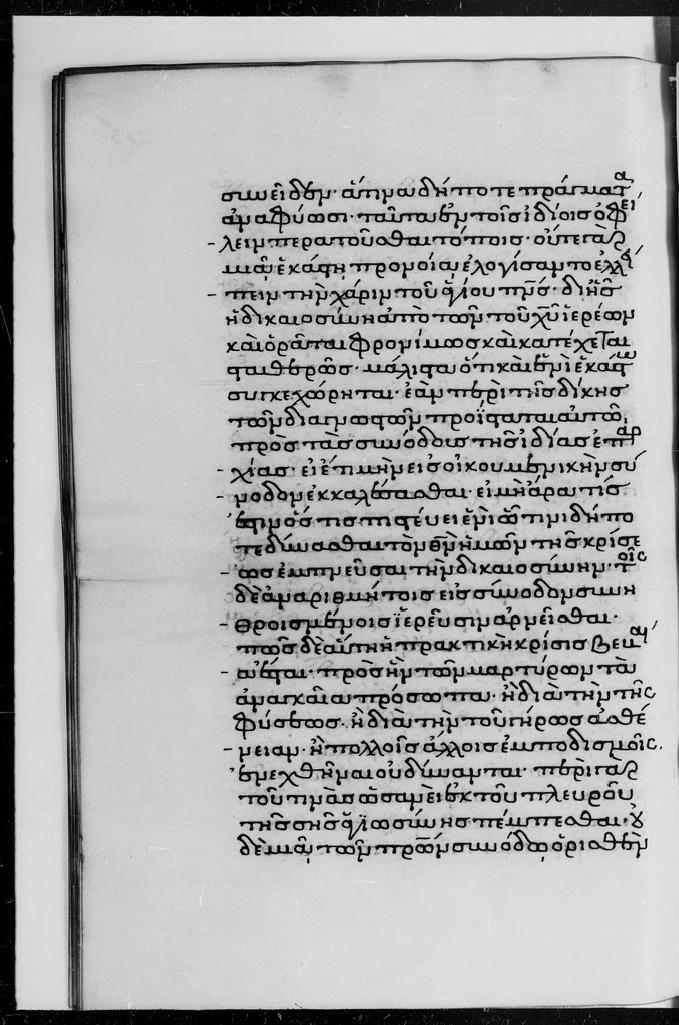 συνεῖδεν· ἅτινα δήποτε πράγματα
ἀναφύωσι· ταῦτα ἐν τοῖς ἰδίοις ὀφεί
λειν περατοῦσθαι τόποις· οὔτε γὰρ
μιᾷ ἑκάστη προνοίᾳ ἐλογίσαντο ἐλλεί
πειν τὴν χάριν τοῦ ἁγίου πν̅ς· δι' ἧς
ἡ δικαιοσύνη ἀπὸ τῶν τοῦ χ̅υ ἱερέων
καὶ ὁρᾶται φρονίμως καὶ κατέχεται
σταθερῶς· μάλιστα ὅτι καὶ ἑνὶ ἑκάστω
συγκεχώρηται· ἐὰν περὶ τῆς δίκης
τῶν διαγνωστῶν προΐσταται αὐτῶ,
πρὸς τὰς συνόδους τῆς ἰδίας ἐπαρ
χίας· εἰ ἔτι μὴν εἰς οἰκουμενικὴν σύ
νοδον ἐκκαλέσασθαι· εἰ μὴ ἄρα τίς
ἐστιν ὅστις πιστεύει ἑνὶ ᾧτινιδήπο
τε δύνασθαι τὸν θ̅ν ἡμῶν τῆς κρίσε
ως ἐμπνεῦσαι τὴν δικαιοσύνην· τοῖς
δὲ ἀναριθμήτοις εἰς σύνοδον συνη
θροισμένοις ἱερεῦσιν ἀρνεῖσθαι·
πῶς δὲ αὕτη ἡ πρακτικὴ κρίσις
ἔσται· πρὸς ἣν τῶν μαρτύρων τὰ
ἀναγκαῖα πρόσωπα· ἢ διὰ τὴν τῆς
φύσεως· ἢ διὰ τὴν τοῦ γήρως ἀσθέ
νειαν· ἢ πολλοῖς ἄλλοις ἐμποδισμοῖς,
ἐνεχθῆναι οὐ δύνανται· περὶ γὰρ
τοῦ τινὰς ὡσανεὶ ἐκ τοῦ πλευροῦ
τῆς σῆς ἁγιωσύνης πέμπεσθαι· οὐ
δὲ μιᾷ τῶν πρ̅ων συνόδῳ ὁρισθὲν